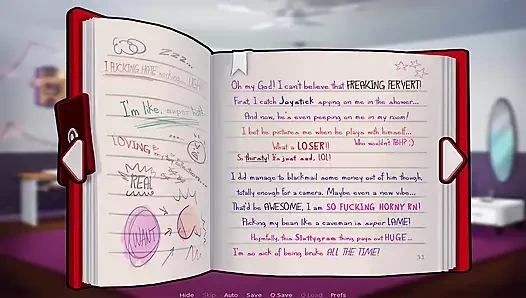 zzz...
I FUCKING HATE
I'm like, super hot!
LOVING,
REAL
WANT
Oh my God! I can't believe that FREAKING PERVERT!
First, I catch Joystick spying on me in the shower...
And now, he's even peeping on me in my room!
I bet he pictures me when he plays with himself...
What a LOSER!! Who wouldn't TBH? ;)
So thirsty! Ew just sad, LOL!
I did manage to blackmail some money out of him though,
totally enough for a camera. Maybe even a new vibe...
That'd be AWESOME, I am SO FUCKING HORNY RN!
Flicking my bean like a caveman is super LAME!
Hopefully, this Sluttygram thing pays out HUGE...
I'm so sick of being broke ALL THE TIME!
31
Hide Skip Auto Save Q.Save Q.Load Prefs